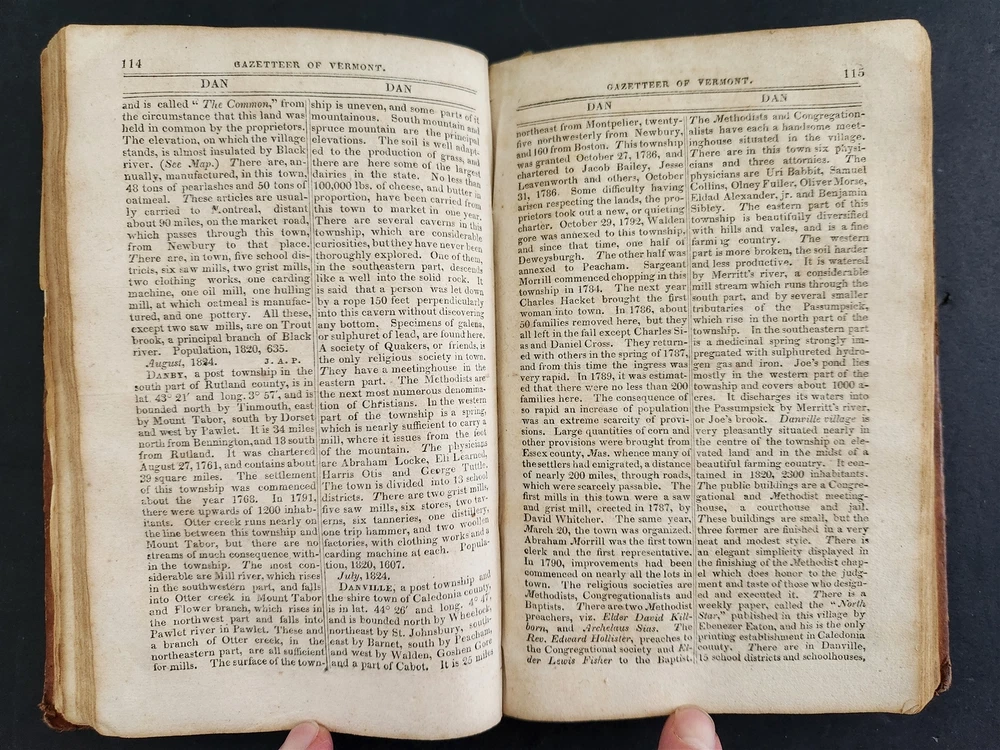 114
GAZETTEER OF VERMONT.
DAN
DAN
and is called " The Common," from
the circumstance that this land was
held in common by the proprietors.
The elevation, on which the village
stands, is almost insulated by Black
river. (See Map.) There are, an-
nually, manufactured, in this town,
48 tons of pearlashes and 50 tons of
oatmeal. These articles are usual-
ly carried to Montreal, distant
about 90 miles, on the market road,
which passes through this town,
from Newbury to that place.
There are, in town, five school dis-
tricts, six saw mills, two grist mills,
two clothing works, one carding
machine, one oil mill, one hulling
mill, at which oatmeal is manufac-
tured, and one pottery. All these,
except two saw mills, are on Trout
brook, a principal branch of Black
river. Population, 1820, 635.
August, 1824. J. A. P.
DANBY, a post township in the
south part of Rutland county, is in
lat. 43° 21' and long. 3° 57', and is
bounded north by Tinmouth, east
by Mount Tabor, south by Dorset
and west by Pawlet. It is 34 miles
north from Bennington, and 18 south
from Rutland. It was chartered
August 27, 1761, and contains about
39 square miles. The settlement
of this township was commenced
about the year 1768. In 1791,
there were upwards of 1200 inhab-
itants. Otter creek runs nearly on
the line between this township and
Mount Tabor, but there are no
streams of much consequence with-
in the township. The most con-
siderable are Mill river, which rises
in the southwestern part, and falls
into Otter creek in Mount Tabor
and Flower branch, which rises in
the northwest part and falls into
Pawlet river in Pawlet. These and
a branch of Otter creek, in the
northeastern part, are all sufficient
for mills. The surface of the town-
ship is uneven, and some parts of it
mountainous. South mountain and
spruce mountain are the principal
elevations. The soil is well adapt-
ed to the production of grass, and
there are here some of the largest
dairies in the state. No less than
100,000 lbs. of cheese, and butter in
proportion, have been carried from
this town to market in one year.
There are several caverns in this
township, which are considerable
curiosities, but they have never been
thoroughly explored. One of them,
in the southeastern part, descends
like a well into the solid rock. It
is said that a person was let down
by a rope 150 feet perpendicularly
into this cavern without discovering
any bottom. Specimens of galena,
or sulphuret of lead, are found here.
A society of Quakers, or friends, is
the only religious society in town.
They have a meetinghouse in the
eastern part. The Methodists are
the next most numerous denomina-
tion of Christians. In the western
part of the township is a spring,
which is nearly sufficient to carry a
mill, where it issues from the foot
of the mountain. The physicians
are Abraham Locke, Eli Learned,
Harris Otis and George Tuttle.
The town is divided into 13 school
districts. There are two grist mills,
five saw mills, six stores, two tav-
erns, six tanneries, one distillery,
one trip hammer, and two woollen
factories, with clothing works and a
carding machine at each. Popula-
tion, 1820, 1607.
July, 1824.
DANVILLE, a post township and
the shire town of Caledonia county,
is in lat. 44° 26' and long. 4° 47',
and is bounded north by Wheelock,
northeast by St. Johnsbury, south-
east by Barnet, south by Peacham,
and west by Walden, Goshen Gore
and a part of Cabot. It is 25 miles
GAZETTEER OF VERMONT.
115
DAN
DAN
northeast from Montpelier, twenty-
five northwesterly from Newbury,
and 160 from Boston. This township
was granted October 27, 1786, and
chartered to Jacob Bailey, Jesse
Leavenworth and others, October
31, 1786. Some difficulty having
arisen respecting the lands, the pro-
prietors took out a new, or quieting
charter. October 29, 1792, Walden
gore was annexed to this township,
and since that time, one half of
Deweysburgh. The other half was
annexed to Peacham. Sargeant
Morrill commenced chopping in this
township in 1784. The next year
Charles Hacket brought the first
woman into town. In 1786, about
50 families removed here, but they
all left in the fall except Charles Si-
as and Daniel Cross. They return-
ed with others in the spring of 1787,
and from this time the ingress was
very rapid. In 1789, it was estimat-
ed that there were no less than 200
families here. The consequence of
so rapid an increase of population
was an extreme scarcity of provi-
sions. Large quantities of corn and
other provisions were brought from
Essex county, Mas. whence many of
the settlers had emigrated, a distance
of nearly 200 miles, through roads,
which were scarcely passable. The
first mills in this town were a saw
and grist mill, erected in 1787, by
David Whitcher. The same year,
March 20, the town was organized.
Abraham Morrill was the first town
clerk and the first representative.
In 1790, improvements had been
commenced on nearly all the lots in
town. The religious societies are
Methodists, Congregationalists and
Baptists. There are two Methodist
preachers, viz. Elder David Kill-
born, and Archelaus Sias. The
Rev. Edward Hollister, preaches to
the Congregational society and El-
der Lewis Fisher to the Baptist.
The Methodists and Congregation-
alists have each a handsome meet-
inghouse situated in the village.
There are in this town six physi-
cians and three attornies. The
physicians are Uri Babbit, Samuel
Collins, Olney Fuller, Oliver Morse,
Eldad Alexander, jr. and Benjamin
Sibley. The eastern part of this
township is beautifully diversified
with hills and vales, and is a fine
farming country. The western
part is more broken, the soil harder
and less productive. It is watered
by Merritt's river, a considerable
mill stream which runs through the
south part, and by several smaller
tributaries of the Passumpsick,
which rise in the north part of the
township. In the southeastern part
is a medicinal spring strongly im-
pregnated with sulphureted hydro-
gen gas and iron. Joe's pond lies
mostly in the western part of the
township and covers about 1000 a-
cres. It discharges its waters into
the Passumpsick by Merritt's river,
or Joe's brook. Danville village is
very pleasantly situated nearly in
the centre of the township on ele-
vated land and in the midst of a
beautiful farming country. It con-
tained in 1820, 2300 inhabitants.
The public buildings are a Congre-
gational and Methodist meeting-
house, a courthouse and jail.
These buildings are small, but the
three former are finished in a very
neat and modest style. There is
an elegant simplicity displayed in
the finishing of the Methodist chap-
el which does honor to the judg-
ment and taste of those who design-
ed and executed it. There is a
weekly paper, called the "North
Star," published in this village by
Ebenezer Eaton, and his is the only
printing establishment in Caledonia
county. There are in Danville,
15 school districts and schoolhouses,